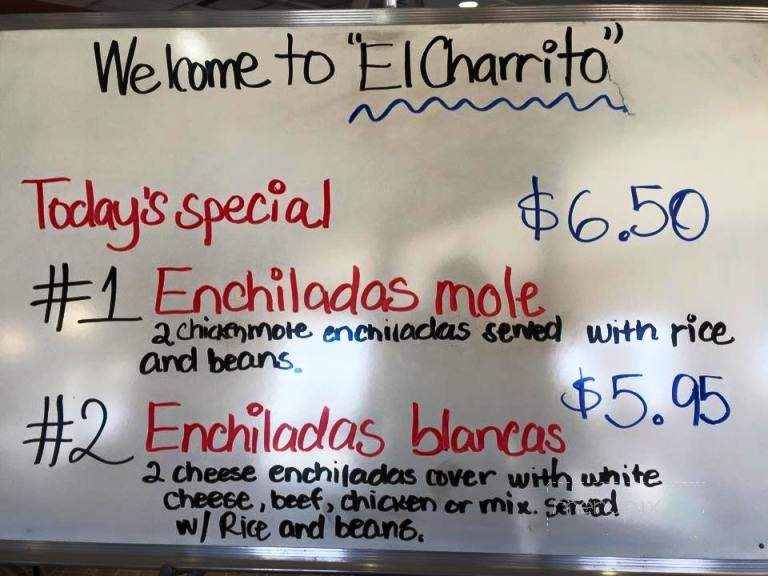 Welcome to "El Charrito"
Today's special $6.50
#1 Enchiladas mole
2 chicken mole enchiladas served with rice
and beans.
$5.95
#2 Enchiladas blancas
2 cheese enchiladas cover with white
cheese, beef, chicken or mix. served
w/ Rice and beans.